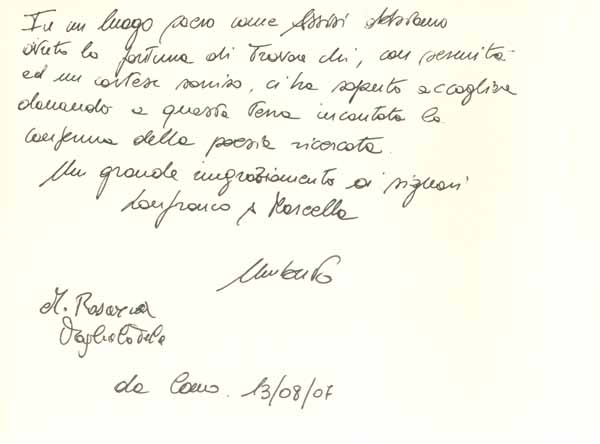 In un luogo sacro come Assisi abbiamo
avuto la fortuna di trovare chi, con serenità
ed un cortese sorriso, ci ha saputo accogliere
donando a questa terra incantata la
conferma della poesia ricercata.
Un grande ringraziamento ai signori
Lanfranco e Marcella
Umberto
M. Rosaria
da Como. 13/08/07